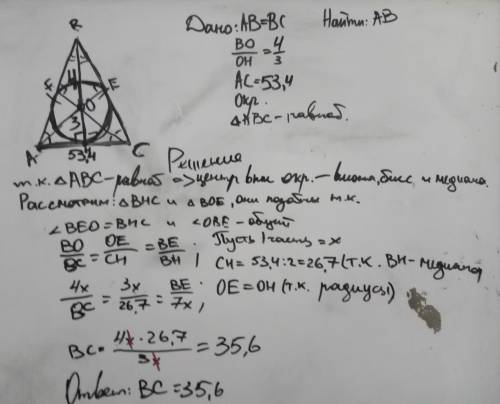 B
Дано: AB=BC Найти: AB
BO/OH = 4/3
AC=53,4
Окр.
△ABC-равноб.
F 4 E
O
3
A 53,4 C
Решение
т.к. △ABC-равноб => центр впис окр.- высота, бисс, и медиана.
Рассмотрим: △BHC и △BOE, они подобны т.к.
∠BEO=BHC и ∠OBE-общий
BO/BC = OE/CH = BE/BH; Пусть 1 часть = x
CH= 53,4:2=26,7 (т.к. BH-медиана)
4x/BC = 3x/26,7 = BE/7x; OE=OH (т.к. радиусы)
BC= 4x·26,7/3x = 35,6
Ответ: BC=35,6